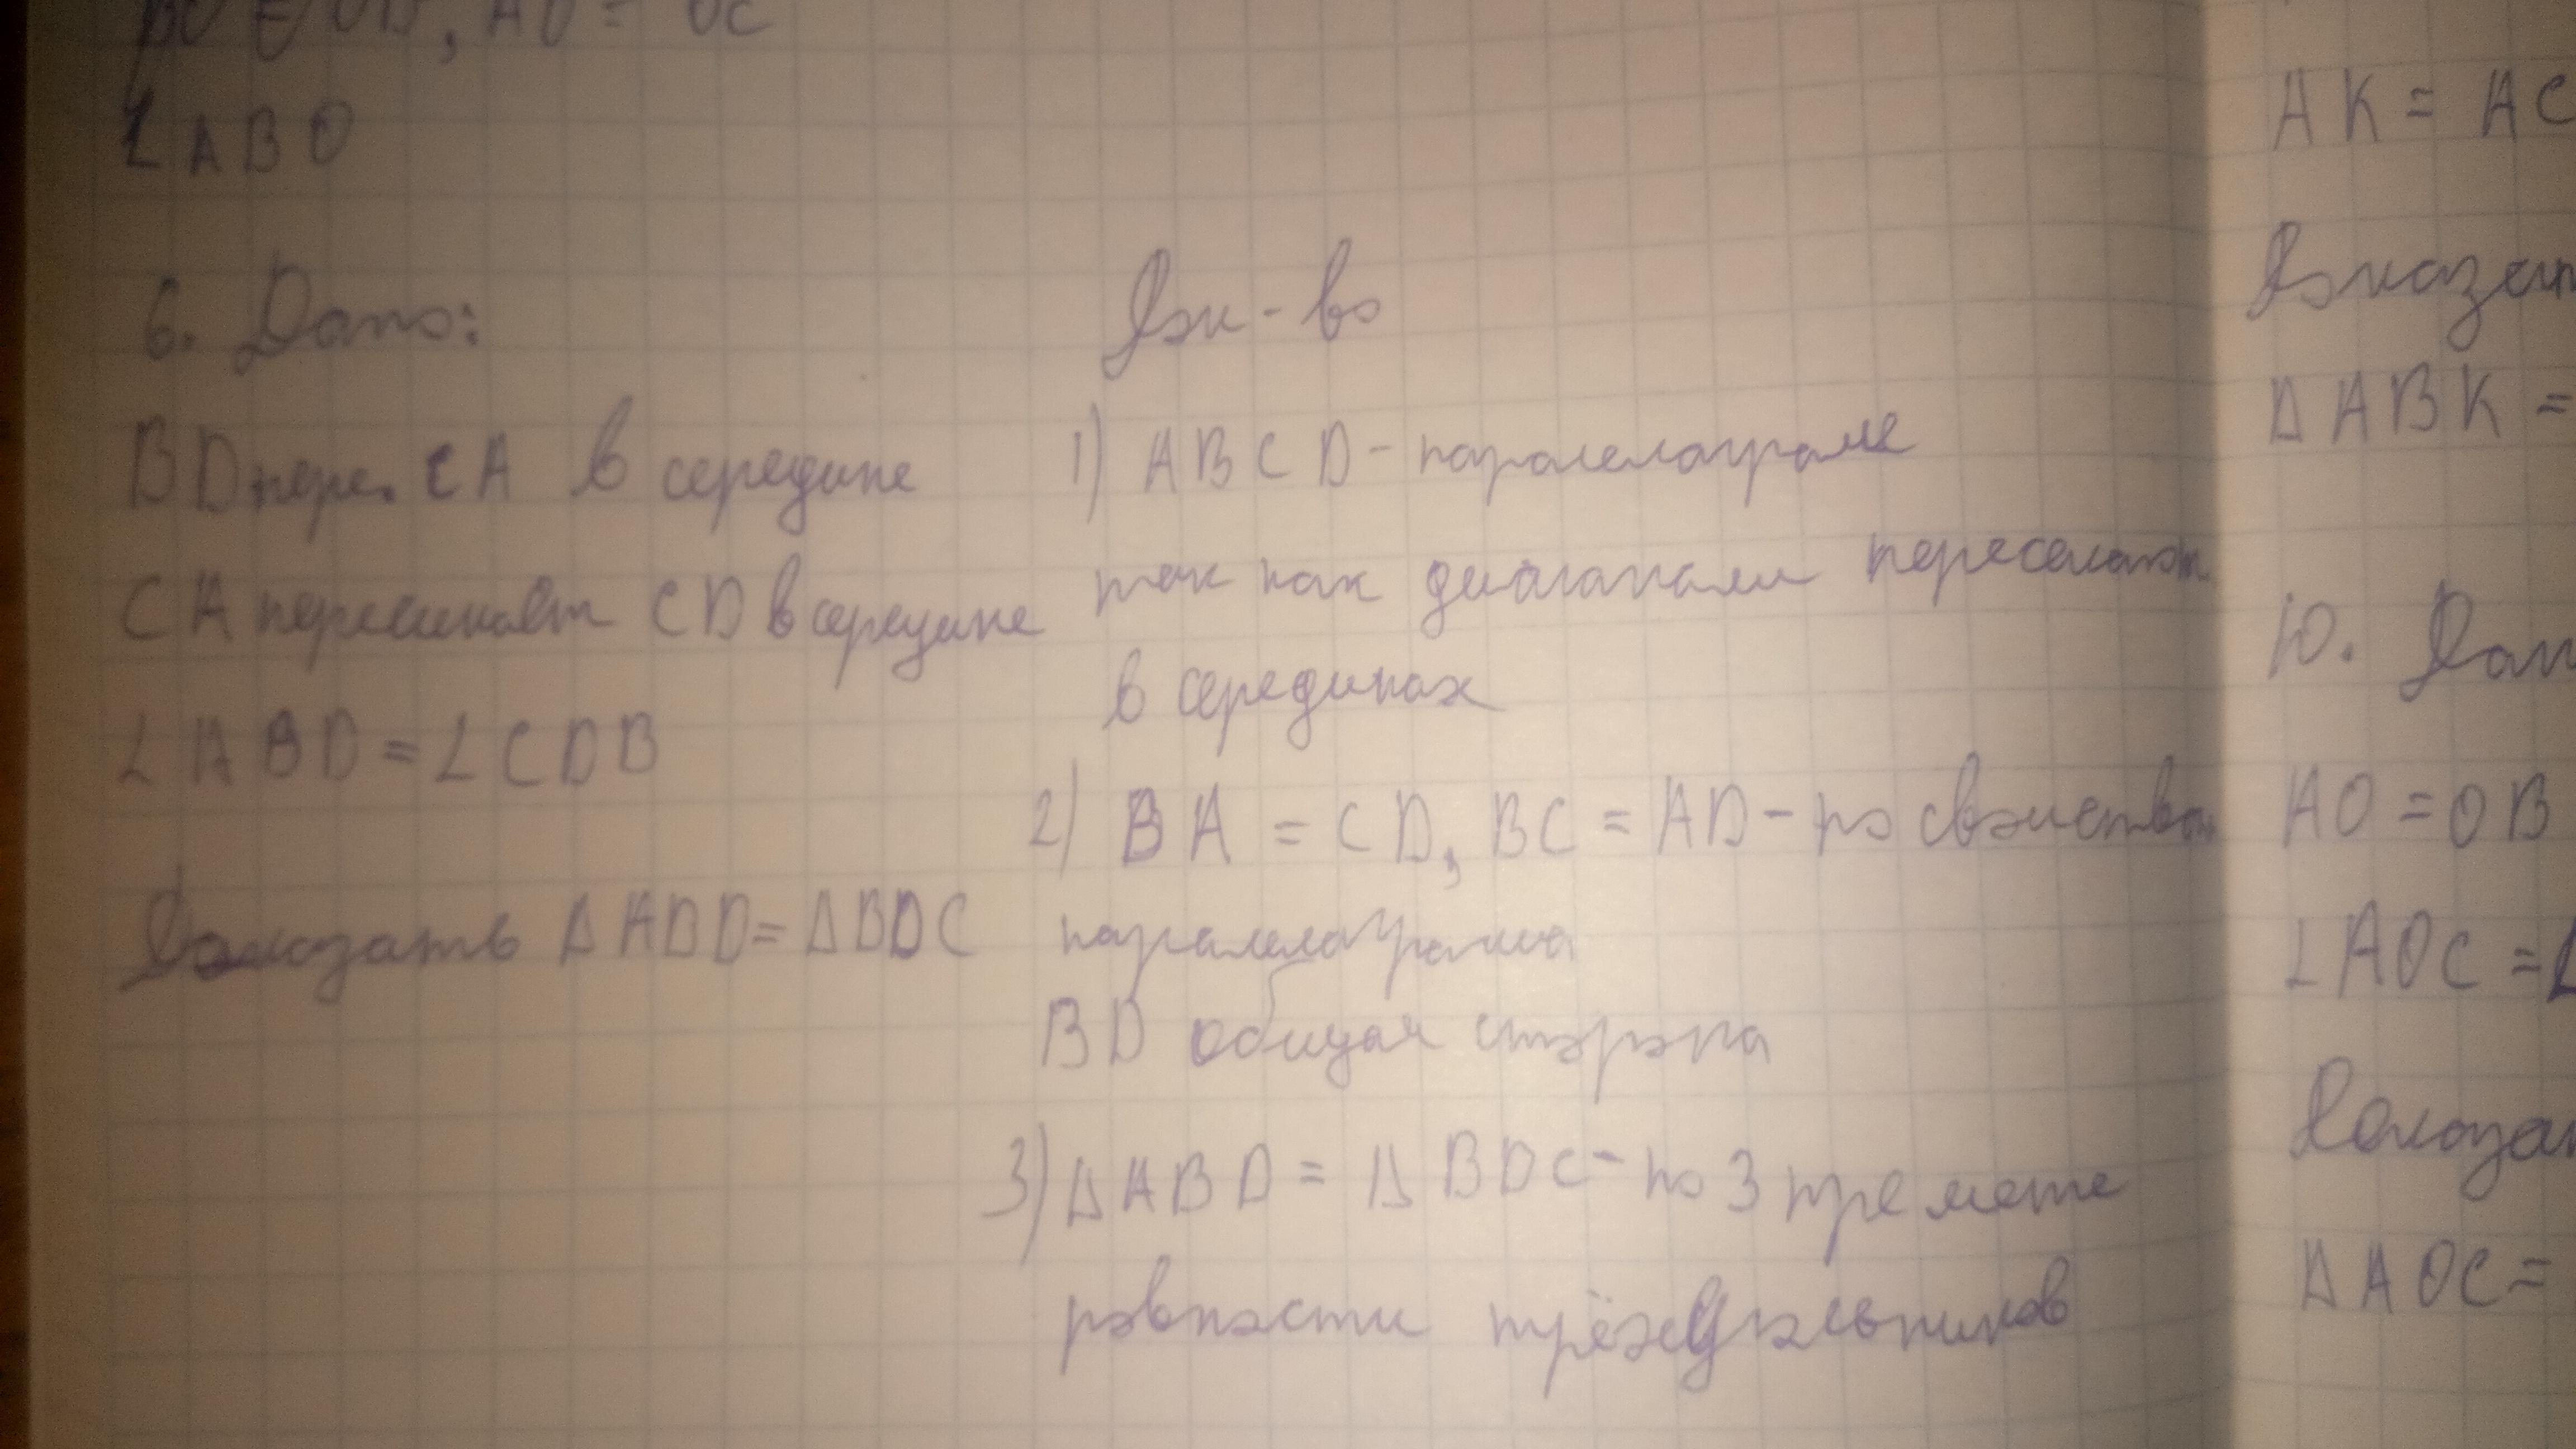 BO = OD, AO = OC
∠ABO
6. Дано:
BD пере. CA в середине
CA пересекает CD в середине
∠ABD = ∠CDB
Доказать ΔABD = ΔBDC
Док-во
1) ABCD - паралелограмм
так как диагонали пересекают
в серединах
2) BA = CD, BC = AD - по свойствам
паралелограмма
BD общая сторона
3) ΔABD = ΔBDC - по 3
ровности трёхугольников
AK = AC
ΔABK =
10.
AO = OB
∠AOC =
ΔAOC =